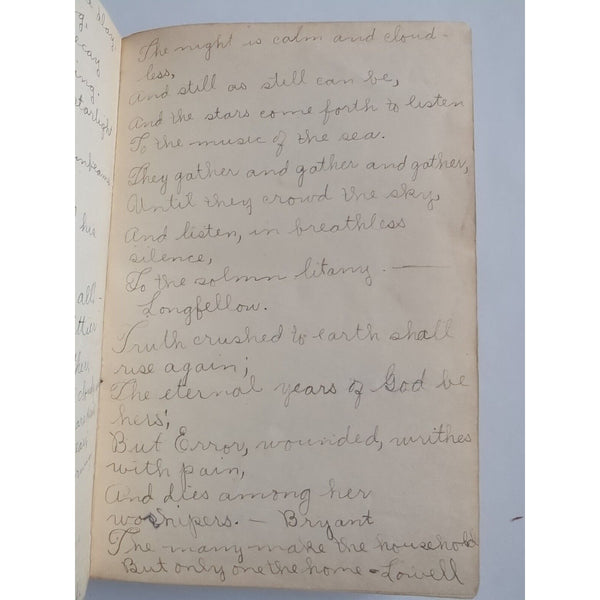 The night is calm and cloud-
less,
And still as still can be,
And the stars come forth to listen
To the music of the sea.
They gather and gather and gather,
Until they crowd the sky,
And listen, in breathless
silence,
To the solmn litany. —
Longfellow.
Truth crushed to earth shall
rise again;
The eternal years of God be
hers;
But Error, wounded, writhes
with pain,
And dies among her
worshipers. — Bryant
The many make the household
But only one the home - Lowell